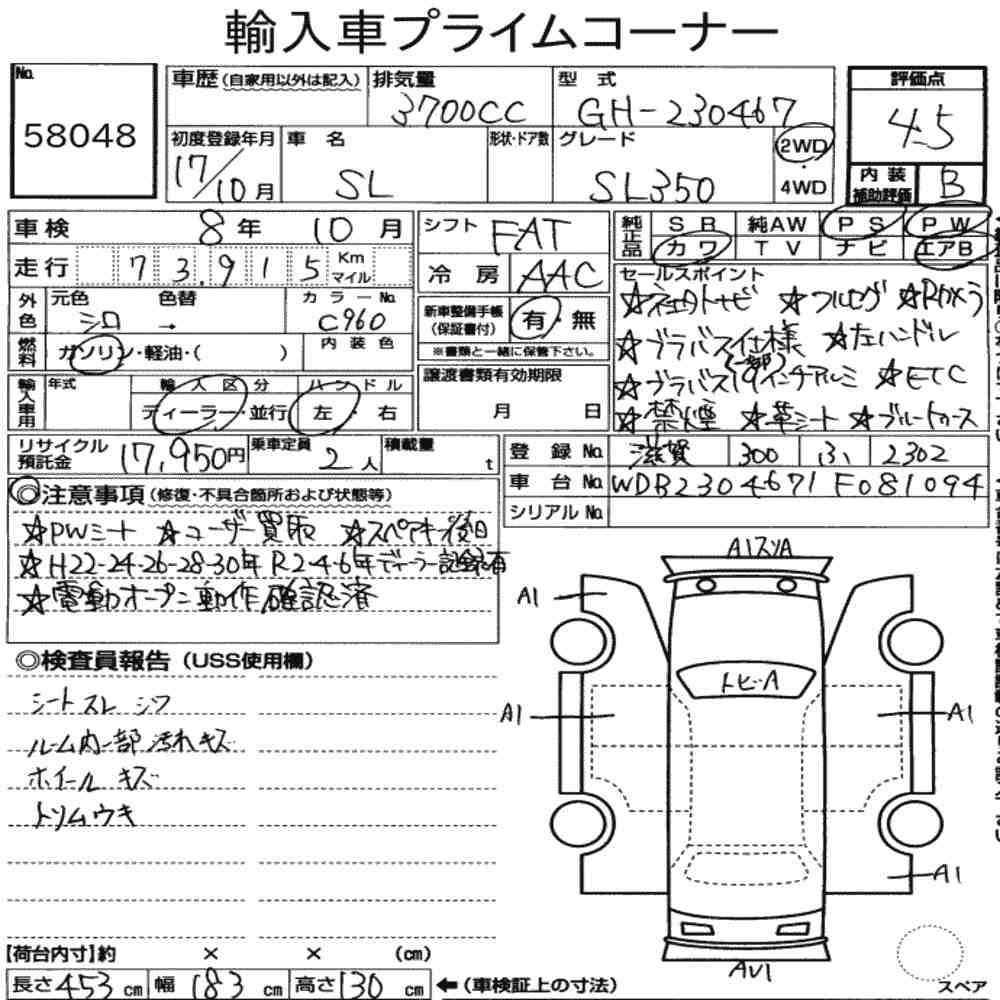 輸入車プライムコーナー
No.
58048
車歴(自家用以外は記入)
排気量
3700CC
型式
GH-230467
評価点
4.5
初度登録年月
17/10月
車名
SL
形状・ドア数
グレード
SL350
2WD・4WD
内装補助評価
B
車検 8年 10月
シフト
FAT
純正品
SR 純AW PS PW
カワ TV ナビ エアB
走行 73,915 Km マイル
冷房
AAC
外色
元色 色替 カラーNo.
シロ → C960
燃料
ガソリン・軽油・( )
内装色
新車整備手帳(保証書付)
有・無
※書類と一緒に保管下さい。
セールスポイント
☆ブラバス仕様 ☆左ハンドル
☆ブラバス(一部)19インチアルミ ☆ETC
☆禁煙 ☆革シート
輸入車用
年式
輸入区分
ディーラー・並行
ハンドル
左・右
譲渡書類有効期限
月 日
リサイクル預託金
17,950円
乗車定員
2人
積載量
t
登録No. 滋賀 300 ふ 2302
車台No. WDB2304671F081094
シリアルNo.
◎注意事項(修復・不具合箇所および状態等)
☆PWシート ☆ユーザー買取 ☆スペアキー後日
☆H22-24-26-28-30年 R2-4-6年ディーラー記録有
☆電動オープン動作確認済
◎検査員報告(USS使用欄)
シート スレ シワ
ルーム内一部汚れキズ
ホイール キズ
トリムウキ
A1スリA
A1
トビA
A1
A1
A1
AV1
【荷台内寸】約 × × (cm)
長さ453cm 幅183cm 高さ130cm
←(車検証上の寸法)
スペア